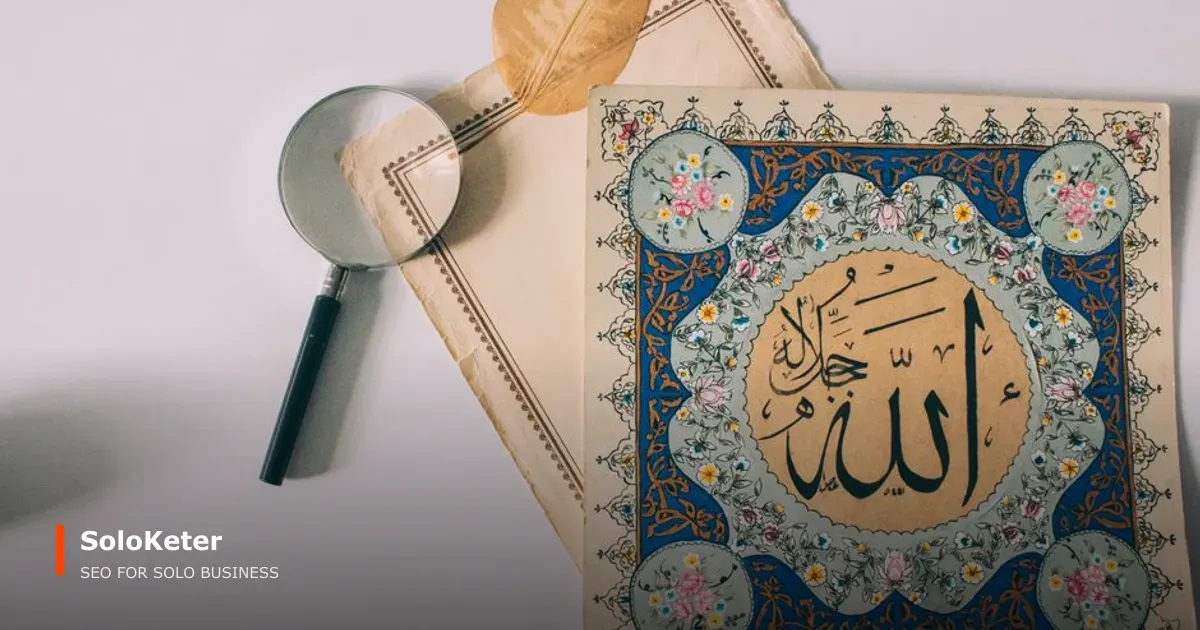 الله
جل جلاله
SoloKeter
SEO FOR SOLO BUSINESS